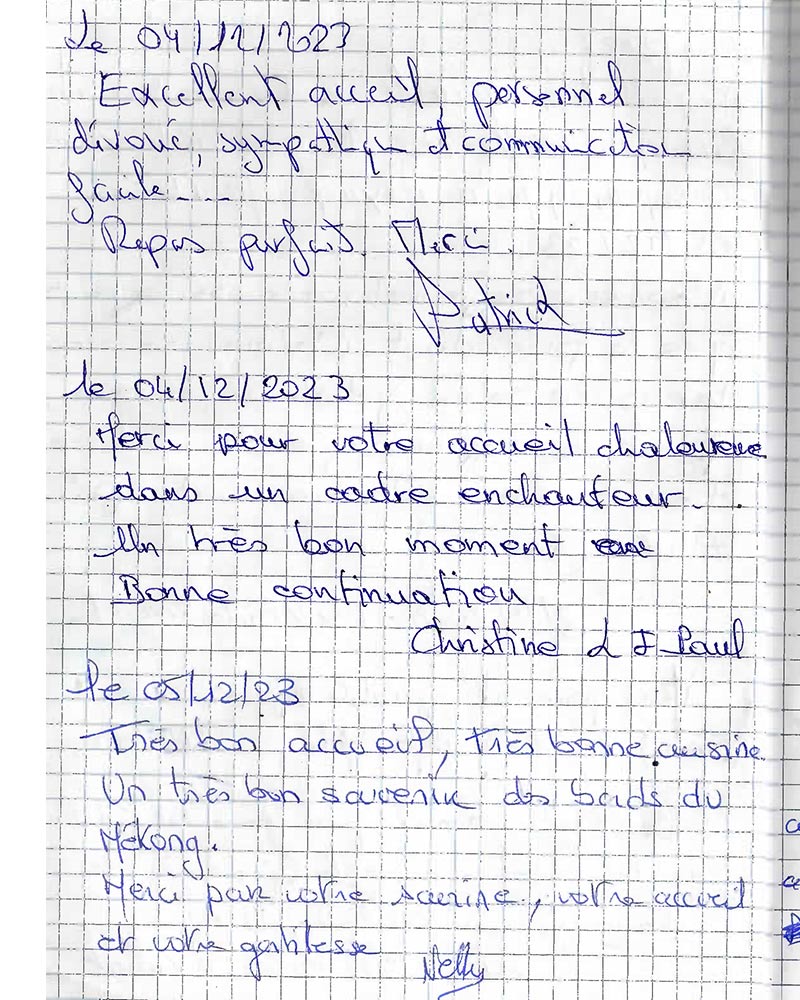 Le 04/12/2023
Excellent acceil, personnel
dévoué, sympathique et communication
facile...
Repas parfait. Merci.
Patrick
le 04/12/2023
Merci pour votre accueil chaleureux
dans un cadre enchanteur..
Un très bon moment
Bonne continuation
Christine & J-Paul
le 05/12/23
Très bon accueil, très bonne cuisine.
Un très bon souvenir des bords du
Mékong.
Merci par votre sourire, votre accueil
et votre gentillesse Nelly